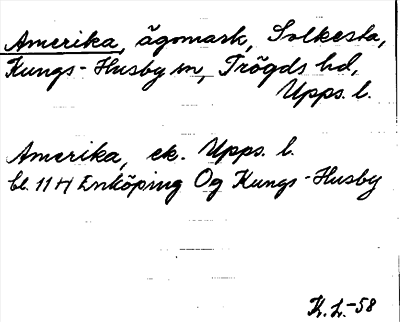 Amerika, ägomark, Solkesta,
Kungs-Husby sn, Trögds hd,
Upps. l.
Amerika, ek. Upps. l.
bl. 11 H Enköping Og Kungs-Husby
K. L. -58